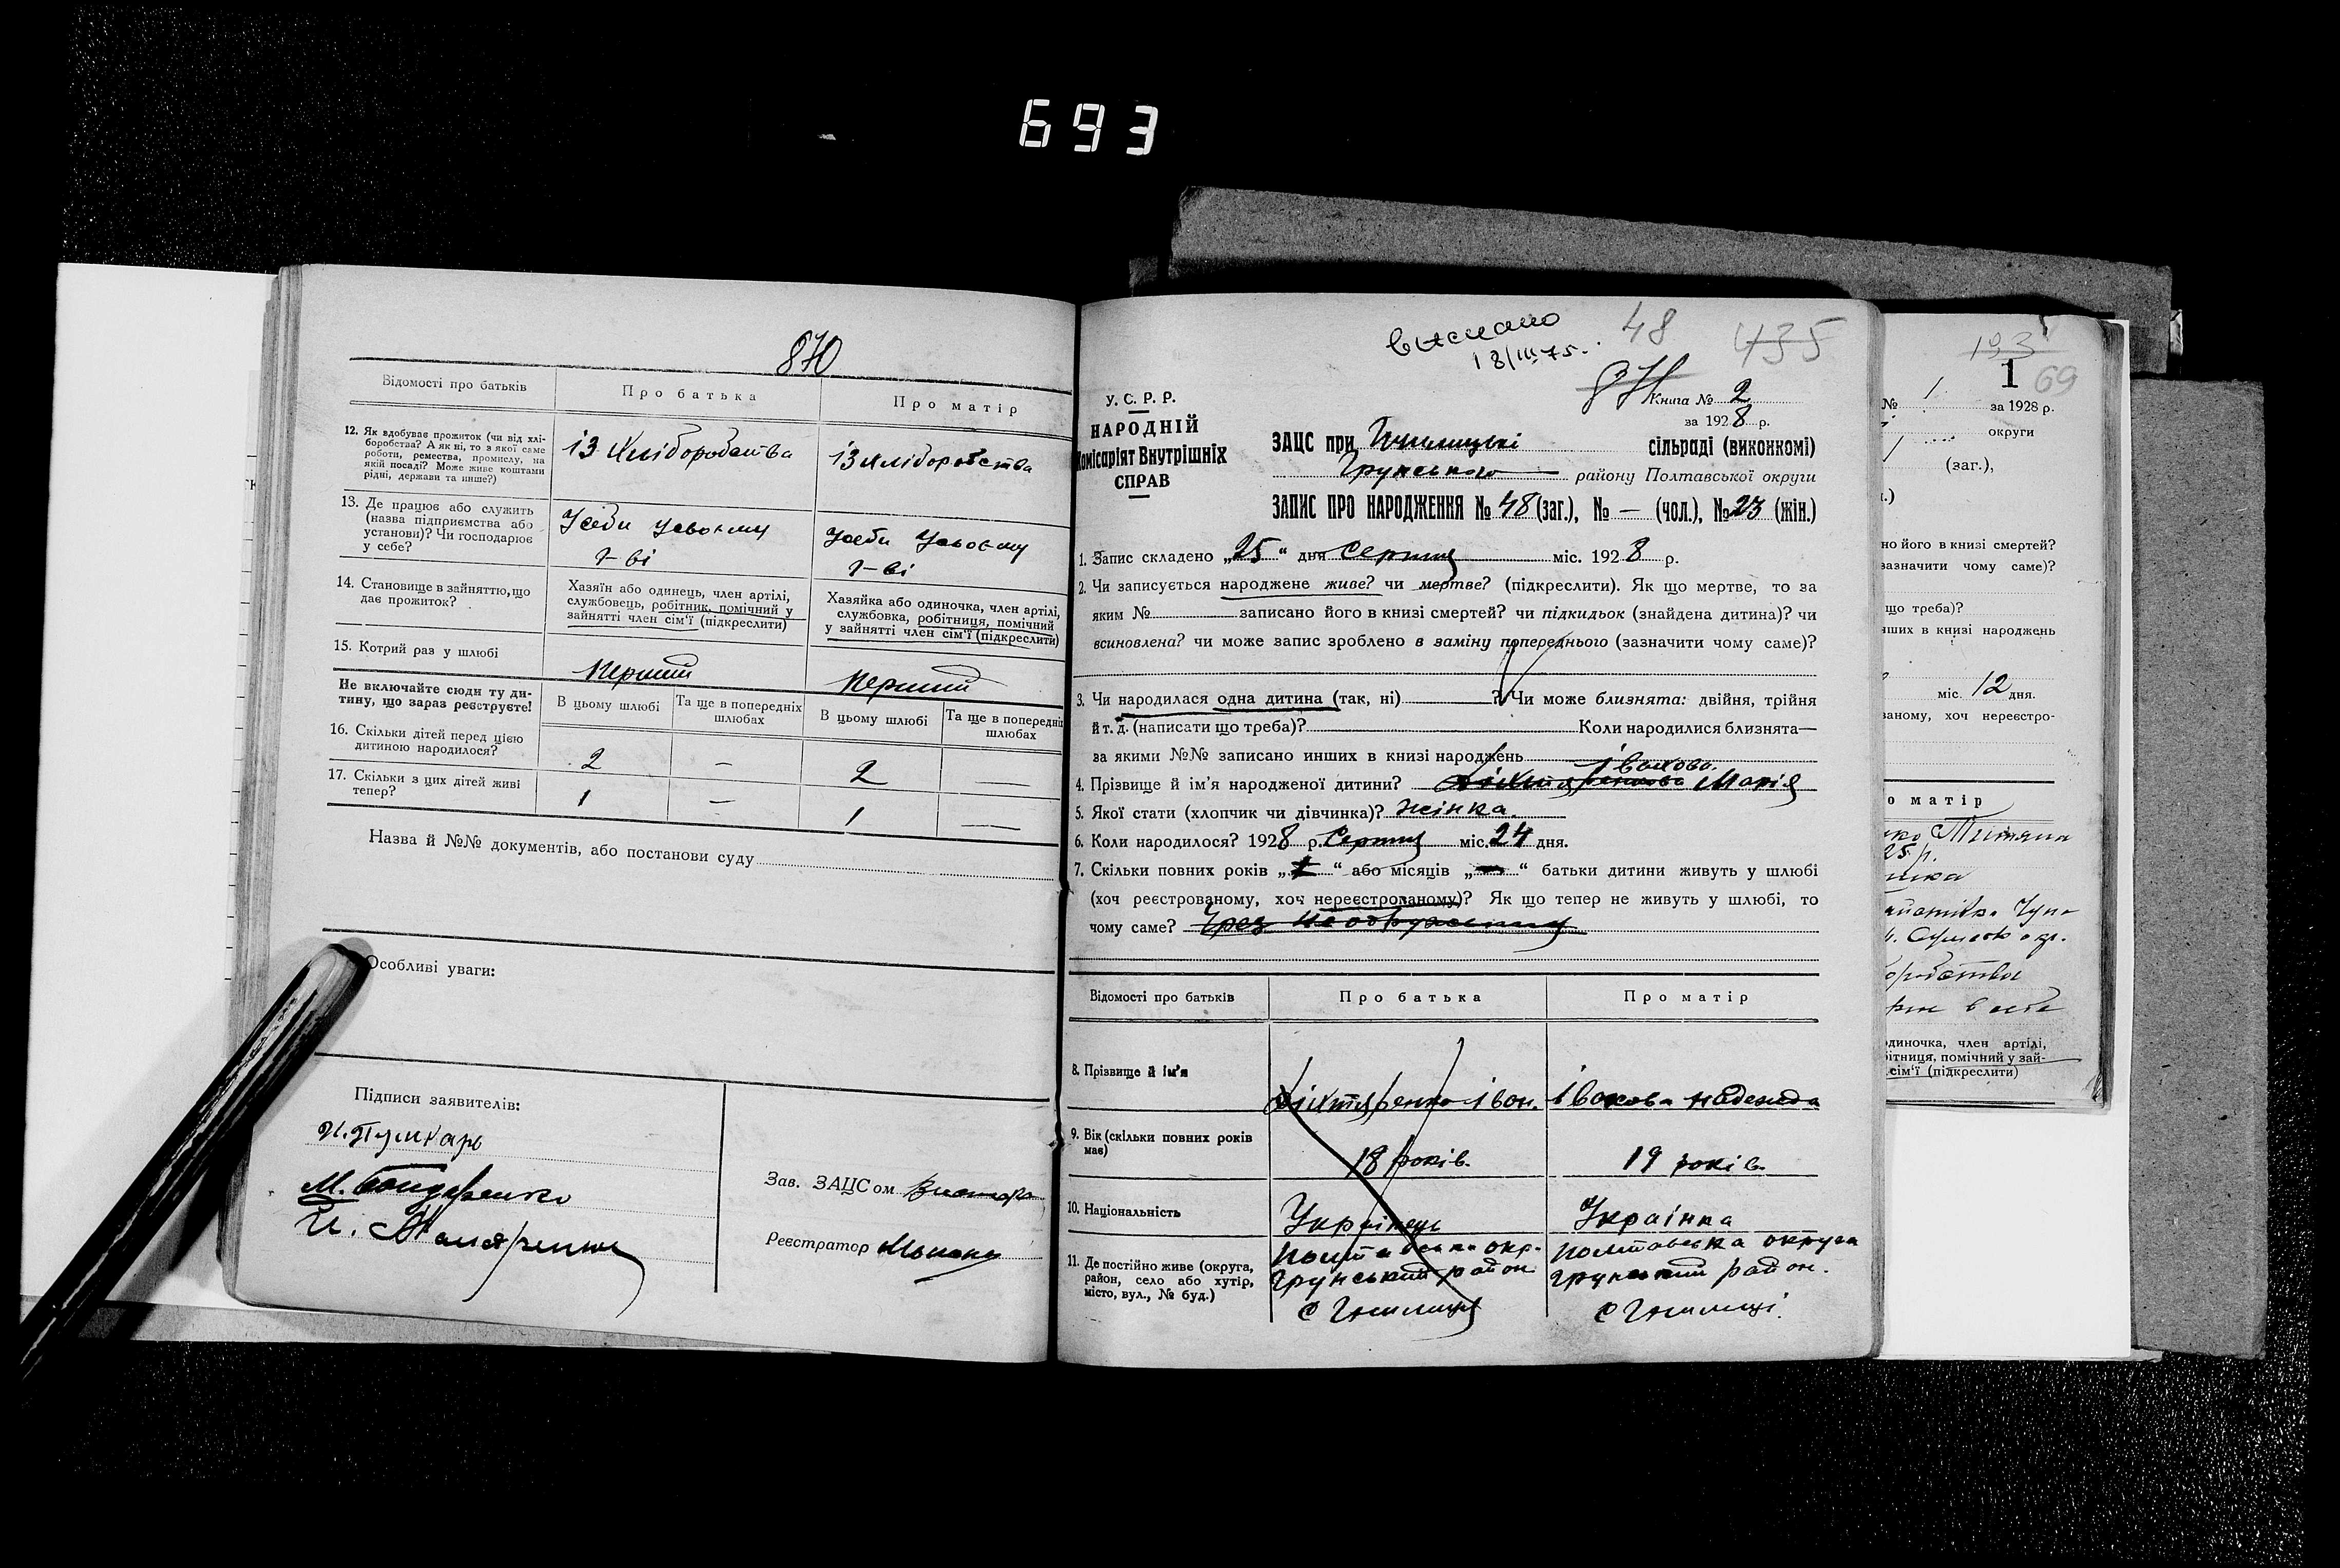 693
870
Відомості про батьків
Про батька
Про матір
12. Як здобуває прожиток (чи від хлі-
боробства? А як ні, то з якої саме
роботи, ремества, промислу, на
якій посаді? Може живе коштами
рідні, держави та инше?)
із Хліборобства
із хліборобства
13. Де працює або служить
(назва підприємства або
установи)? Чи господарює
у себе?
Усеби
г-ві
Усеби
г-ві
14. Становище в зайняттю, що
дає прожиток?
Хазяїн або одинець, член артілі,
службовець, робітник, помічний у
зайнятті член сім'ї (підкреслити)
Хазяйка або одиночка, член артілі,
службовка, робітниця, помічний
у зайнятті член сім'ї (підкреслити)
15. Котрий раз у шлюбі
перший
перший
Не включайте сюди ту ди-
тину, що зараз реєструєте!
В цьому шлюбі
Та ще в попередніх
шлюбах
В цьому шлюбі
Та ще в попередніх
шлюбах
16. Скільки дітей перед цією
дитиною народилося?
2
—
2
—
17. Скільки з цих дітей живі
тепер?
1
—
1
—
Назва й №№ документів, або постанови суду
Особливі уваги:
Підписи заявителів:
М. Бондаренко
Зав. ЗАЦСом
Реєстратор
18/III 75.
48
435
Книга № 2
за 1928 р.
У. С. Р. Р.
НАРОДНІЙ
Комісаріят Внутрішніх
СПРАВ
ЗАЦС при сільраді (виконкомі)
Грунського району Полтавської округи
ЗАПИС ПРО НАРОДЖЕННЯ № 48 (заг.), № — (чол.), № 23 (жін.)
1. Запис складено „25" дня Серпня міс. 1928 р.
2. Чи записується народжене живе? чи мертве? (підкреслити). Як що мертве, то за
яким № записано його в книзі смертей? чи підкидьок (знайдена дитина)? чи
всиновлена? чи може запис зроблено в заміну попереднього (зазначити чому саме)?
3. Чи народилася одна дитина (так, ні) ? Чи може близнята: двійня, трійня
й т. д. (написати що треба)? Коли народилися близнята—
за якими №№ записано инших в книзі народжень
Івахова.
4. Прізвище й ім'я народженої дитини? Марія
5. Якої стати (хлопчик чи дівчинка)? жінка.
6. Коли народилося? 1928 р. Серпня міс. 24 дня.
7. Скільки повних років „ " або місяців „—" батьки дитини живуть у шлюбі
(хоч реєстрованому, хоч нереєстрованому)? Як що тепер не живуть у шлюбі, то
чому саме?
Відомості про батьків
Про батька
Про матір
8. Прізвище й ім'я
Діхтяренко Іван.
Івахова Надежда
9. Вік (скільки повних років
має)
18 років.
19 років.
10. Національність
Українець
Українка
11. Де постійно живе (округа,
район, село або хутір,
місто, вул., № буд.)
Полтавська окр.
Грунський район
с Гнилиця
Полтавська округа
Грунський район.
с Гнилиці.
193
1
69
№ 1 за 1928 р.
округи
(заг.),
но його в книзі смертей?
зазначити чому саме)?
що треба)?
нших в книзі народжень
міс. 12 дня.
ваному, хоч нереєстро-
о матір
25 р.
одиночка, член артілі,
бітниця, помічний у зай-
сім'ї (підкреслити)